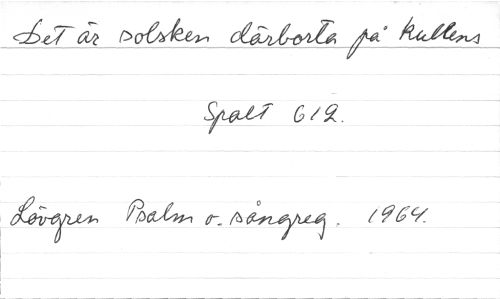 Det är solsken därborta på kullens
Spalt 612.
Lövgren Psalm o. sångreg. 1964.